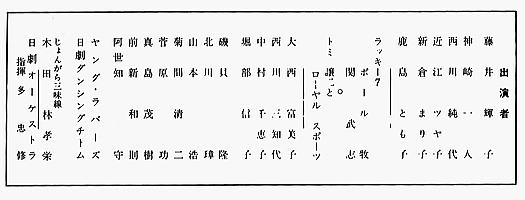 出演者
藤井輝子
神崎一人
西川純代
近江ツヤ子
新倉まり子
鹿島とも子
ラッキー7
ポール牧
関武志
トミ譲二と
ローヤルスポーツ
大西富美子
西川三知代
中村千恵子
堀部信子
磯貝隆
北川璋
山本浩
菊間清二
菅原功
真島茂樹
前新和則
阿世知守
ヤング・ラバーズ
日劇ダンシングチーム
じょんがら三味線
木田林孝栄
日劇オーケストラ
指揮多忠修